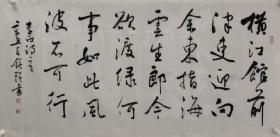 橫江館前
津吏迎向
余東指海
雲生郎今
欲渡緣何
事如此風
波不可行